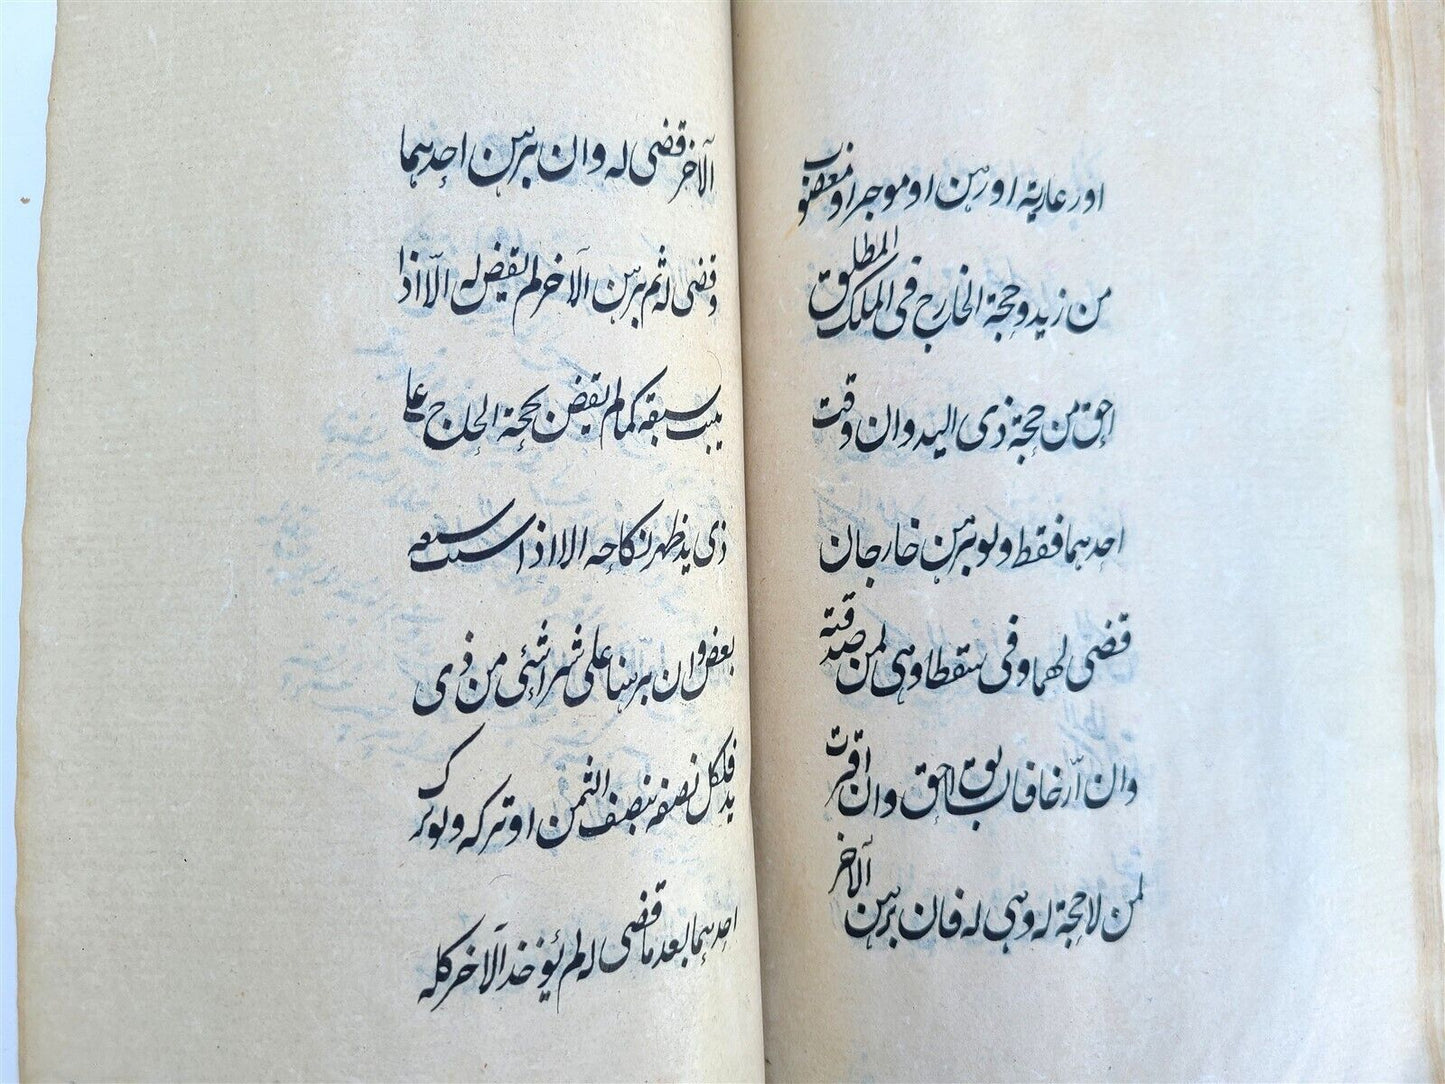 اور عارية اورهن او موجر او مغصوب
من زيد وحجة الخارج فى الملك المطلق
احق من حجة ذى اليد وان وقت
احدهما فقط ولو برهن خارجان
قضى لهما وفى سقطا وهى لمن صدقته
وان ارّخا فالسابق احق وان اقرت
لمن لا حجة له وهى له فان برهن الآخر
الآخر قضى له وان برهن احدهما
وقضى له ثم برهن الآخر لم يقض له الّا اذا
يثبت سبقه كما لم يقض بحجة الخارج على
ذى يد ظهر نكاحه الا اذا ثبت سبقه
بعض وان برهنا على شراء شئى من ذى
يد فلكل نصفه بنصف الثمن او تركه ولو ترك
احدهما بعد ما قضى له لم يؤخذ الآخر كله